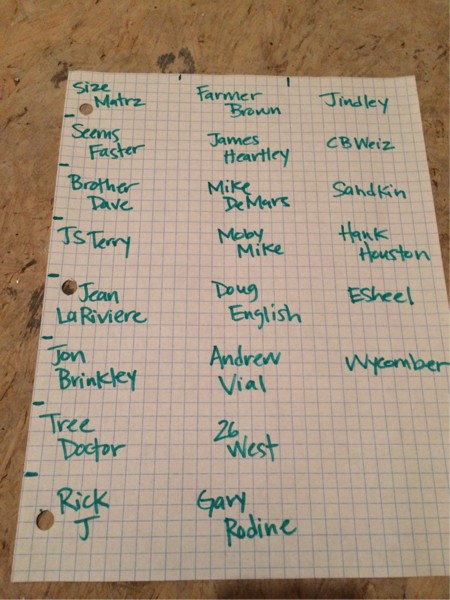 Size
Matrz
Seems
Faster
Brother
Dave
JS Terry
Jean
LaRiviere
Jon
Brinkley
Tree
Doctor
Rick
J
Farmer
Brown
James
Heartley
Mike
DeMars
Moby
Mike
Doug
English
Andrew
Vial
26
West
Gary
Rodine
Jindley
CBWeiz
Sandkin
Hank
Houston
ESheel
Wycomber